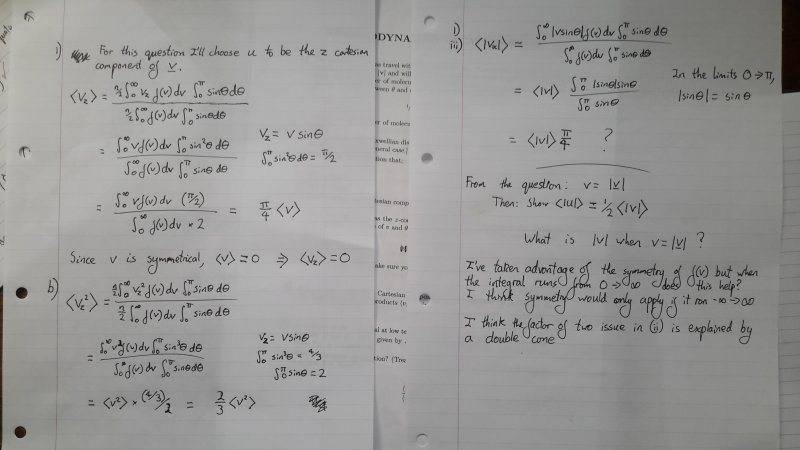 i) For this question I'll choose u to be the z cartesian
component of v.
⟨V_z⟩ = n/2∫₀^∞ V_z f(v)dv ∫₀^π sinθdθ / n/2∫₀^∞ f(v)dv ∫₀^π sinθdθ
= ∫₀^∞ vf(v)dv ∫₀^π sin²θdθ / ∫₀^∞ f(v)dv ∫₀^π sinθdθ
V_z = v sinθ
∫₀^π sin²θdθ = π/2
= ∫₀^∞ vf(v)dv (π/2) / ∫₀^∞ f(v)dv × 2 = π/4 ⟨v⟩
Since v is symmetrical, ⟨v⟩ = 0 ⇒ ⟨V_z⟩ = 0
b)
⟨V_z²⟩ = n/2∫₀^∞ V_z² f(v)dv ∫₀^π sinθdθ / n/2∫₀^∞ f(v)dv ∫₀^π sinθdθ
= ∫₀^∞ v²f(v)dv ∫₀^π sin³θdθ / ∫₀^∞ f(v)dv ∫₀^π sinθdθ
V_z = vsinθ
∫₀^π sin³θ = 4/3
∫₀^π sinθ = 2
= ⟨v²⟩ × (4/3)/2 = 2/3 ⟨v²⟩
DYNA
1)
iii) ⟨|V_x|⟩ = ∫₀^∞ |vsinθ|f(v)dv ∫₀^π sinθdθ / ∫₀^∞ f(v)dv ∫₀^π sinθdθ
= ⟨|v|⟩ ∫₀^π |sinθ|sinθ / ∫₀^π sinθ
In the limits 0→π,
|sinθ| = sinθ
= ⟨|v|⟩ π/4 ?
From the question: v = |v|
Then: Show ⟨|u|⟩ = 1/2⟨|v|⟩
What is |v| when v = |v| ?
I've taken advantage of the symmetry of f(v) but when
the integral runs from 0→∞ does this help?
I think symmetry would only apply if it ran -∞→∞
I think the factor of two issue in (ii) is explained by
a double cone